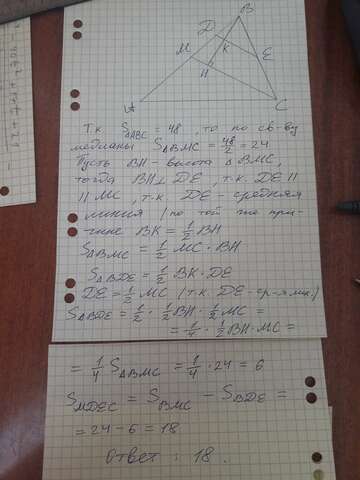 B
D
M
K
E
H
A
C
Т.к S△ABC = 48, то по св-ву
медианы S△BMC = 48/2 = 24
Пусть BH - высота △ BMC,
тогда BH ⊥ DE, т.к. DE ||
|| MC, т.к DE - средняя
линия, по той же при-
чине BK = 1/2 BH
S△BMC = 1/2 MC · BH
S△BDE = 1/2 BK · DE
DE = 1/2 MC (т.к. DE - ср-я лин.)
S△BDE = 1/2 · 1/2 BH · 1/2 MC =
= 1/4 · 1/2 BH · MC =
= 1/4 S△BMC = 1/4 · 24 = 6
SMDEC = SBMC - SBDE =
= 24 - 6 = 18
Ответ : 18.